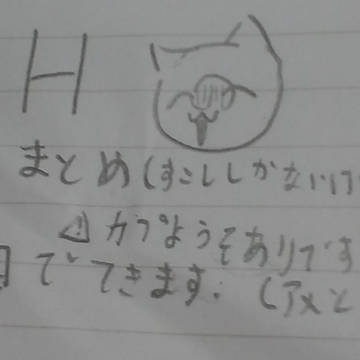 H
まとめ(すこししかないけ
⚠カプようそありです
でできます. (アメと